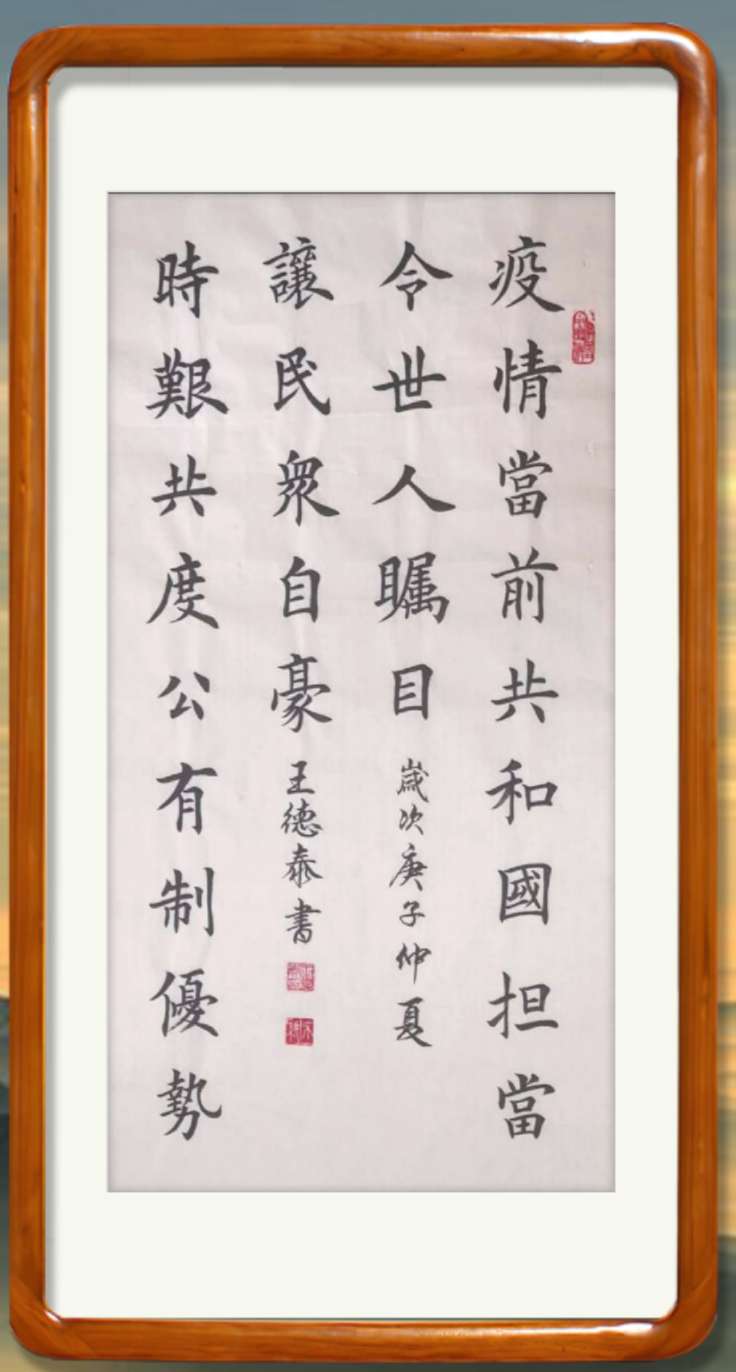 疫情當前共和國担當
令世人瞩目 嵗次庚子仲夏
讓民衆自豪 王德泰書
時艱共度公有制優勢